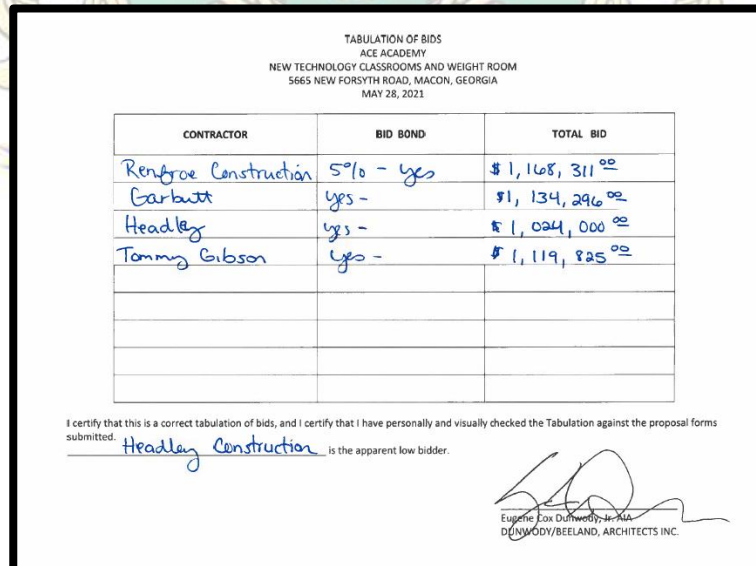 TABULATION OF BIDS
ACE ACADEMY
NEW TECHNOLOGY CLASSROOMS AND WEIGHT ROOM
5665 NEW FORSYTH ROAD, MACON, GEORGIA
MAY 28, 2021
CONTRACTOR BID BOND TOTAL BID
Renfroe Construction 5% - yes $ 1,168,311 00
Garbutt yes - $1,134,296 00
Headley yes - $ 1,024,000 00
Tommy Gibson yes - $ 1,119,825 00
I certify that this is a correct tabulation of bids, and I certify that I have personally and visually checked the Tabulation against the proposal forms
submitted. Headley Construction is the apparent low bidder.
Eugene Cox Dunwody, Jr. AIA
DUNWODY/BEELAND, ARCHITECTS INC.